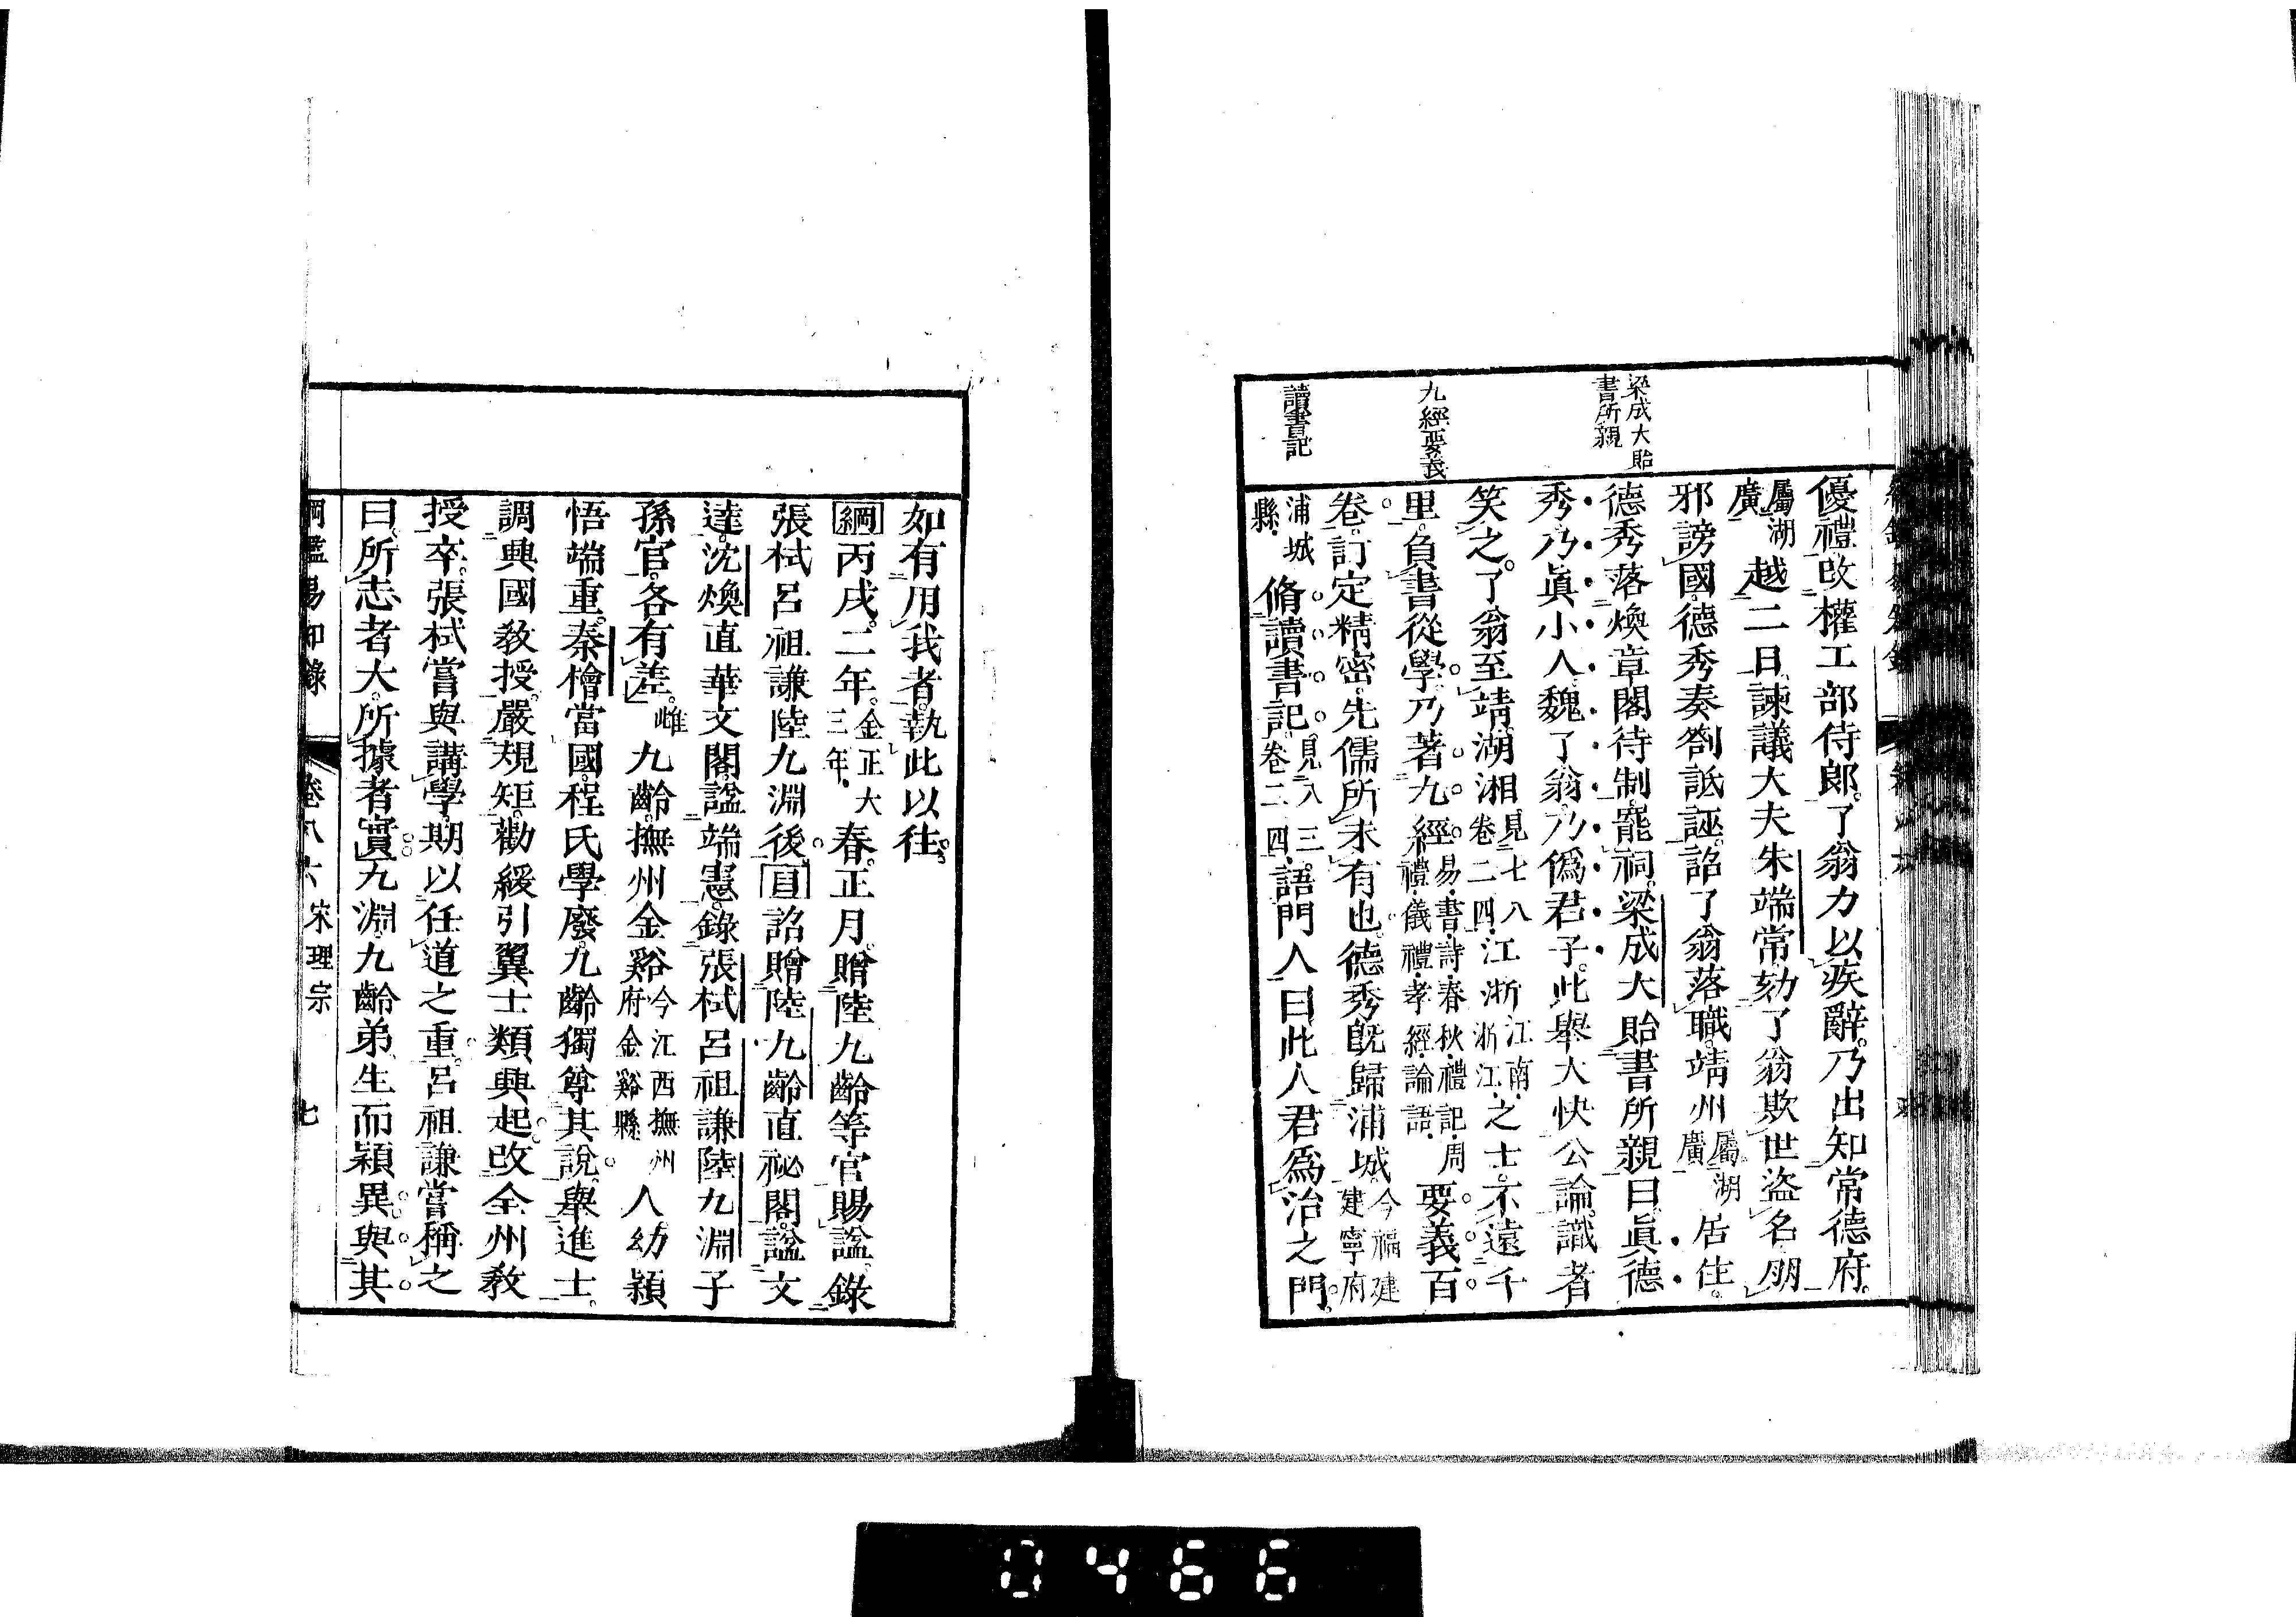 梁成大貽
書所親
九經要義
讀書記
優禮改權工部侍郎了翁力以疾辭乃出知常德府
屬湖廣越二日諫議大夫朱端常劾了翁欺世盜名朋
邪謗國德秀奏劄詆誣詔了翁落職靖州屬湖廣居住
德秀落煥章閣待制罷祠梁成大貽書所親曰眞德
秀乃眞小人魏了翁乃僞君子此舉大快公論識者
笑之了翁至靖湖湘見七八卷二四江浙江南浙江之士不遠千
里負書從學乃著九經易書詩春秋禮記周禮儀禮孝經論語要義百
卷訂定精密先儒所未有也德秀既歸浦城今福建建寧府
浦城縣脩讀書記見八三卷二四語門人曰此人君爲治之門
如有用我者執此以往
綱丙戌二年金正大三年春正月贈陸九齡等官賜諡錄
張栻呂祖謙陸九淵後目詔贈陸九齡直祕閣諡文
達沈煥直華文閣諡端憲錄張栻呂祖謙陸九淵子
孫官各有差九齡撫州金谿今江西撫州府金谿縣人幼穎
悟端重秦檜當國程氏學廢九齡獨尊其說舉進士
調興國教授嚴規矩勸綏引翼士類興起改全州教
授卒張栻嘗與講學期以任道之重呂祖謙嘗稱之
曰所志者大所據者實九淵九齡弟生而穎異與其
綱鑑易知錄 卷八六 宋理宗 七
0466